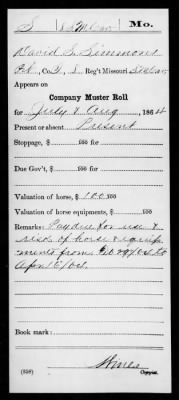 S | 8 S.M. Cav | Mo.
David S. Simmons
Co. , 8 Reg't Missouri State Cav
Appears on
Company Muster Roll
for July & Aug, 1864
Present or absent Present
Stoppage, $ 100
Due Gov't, $ 100
Valuation of horse, $ 100 100
Valuation of horse equipments, $ 100
Remarks: Pay due for use &
risk of horse & equip
ments from Feb 29/64 to
Apr /64.
Book mark:
(358) Copyist.